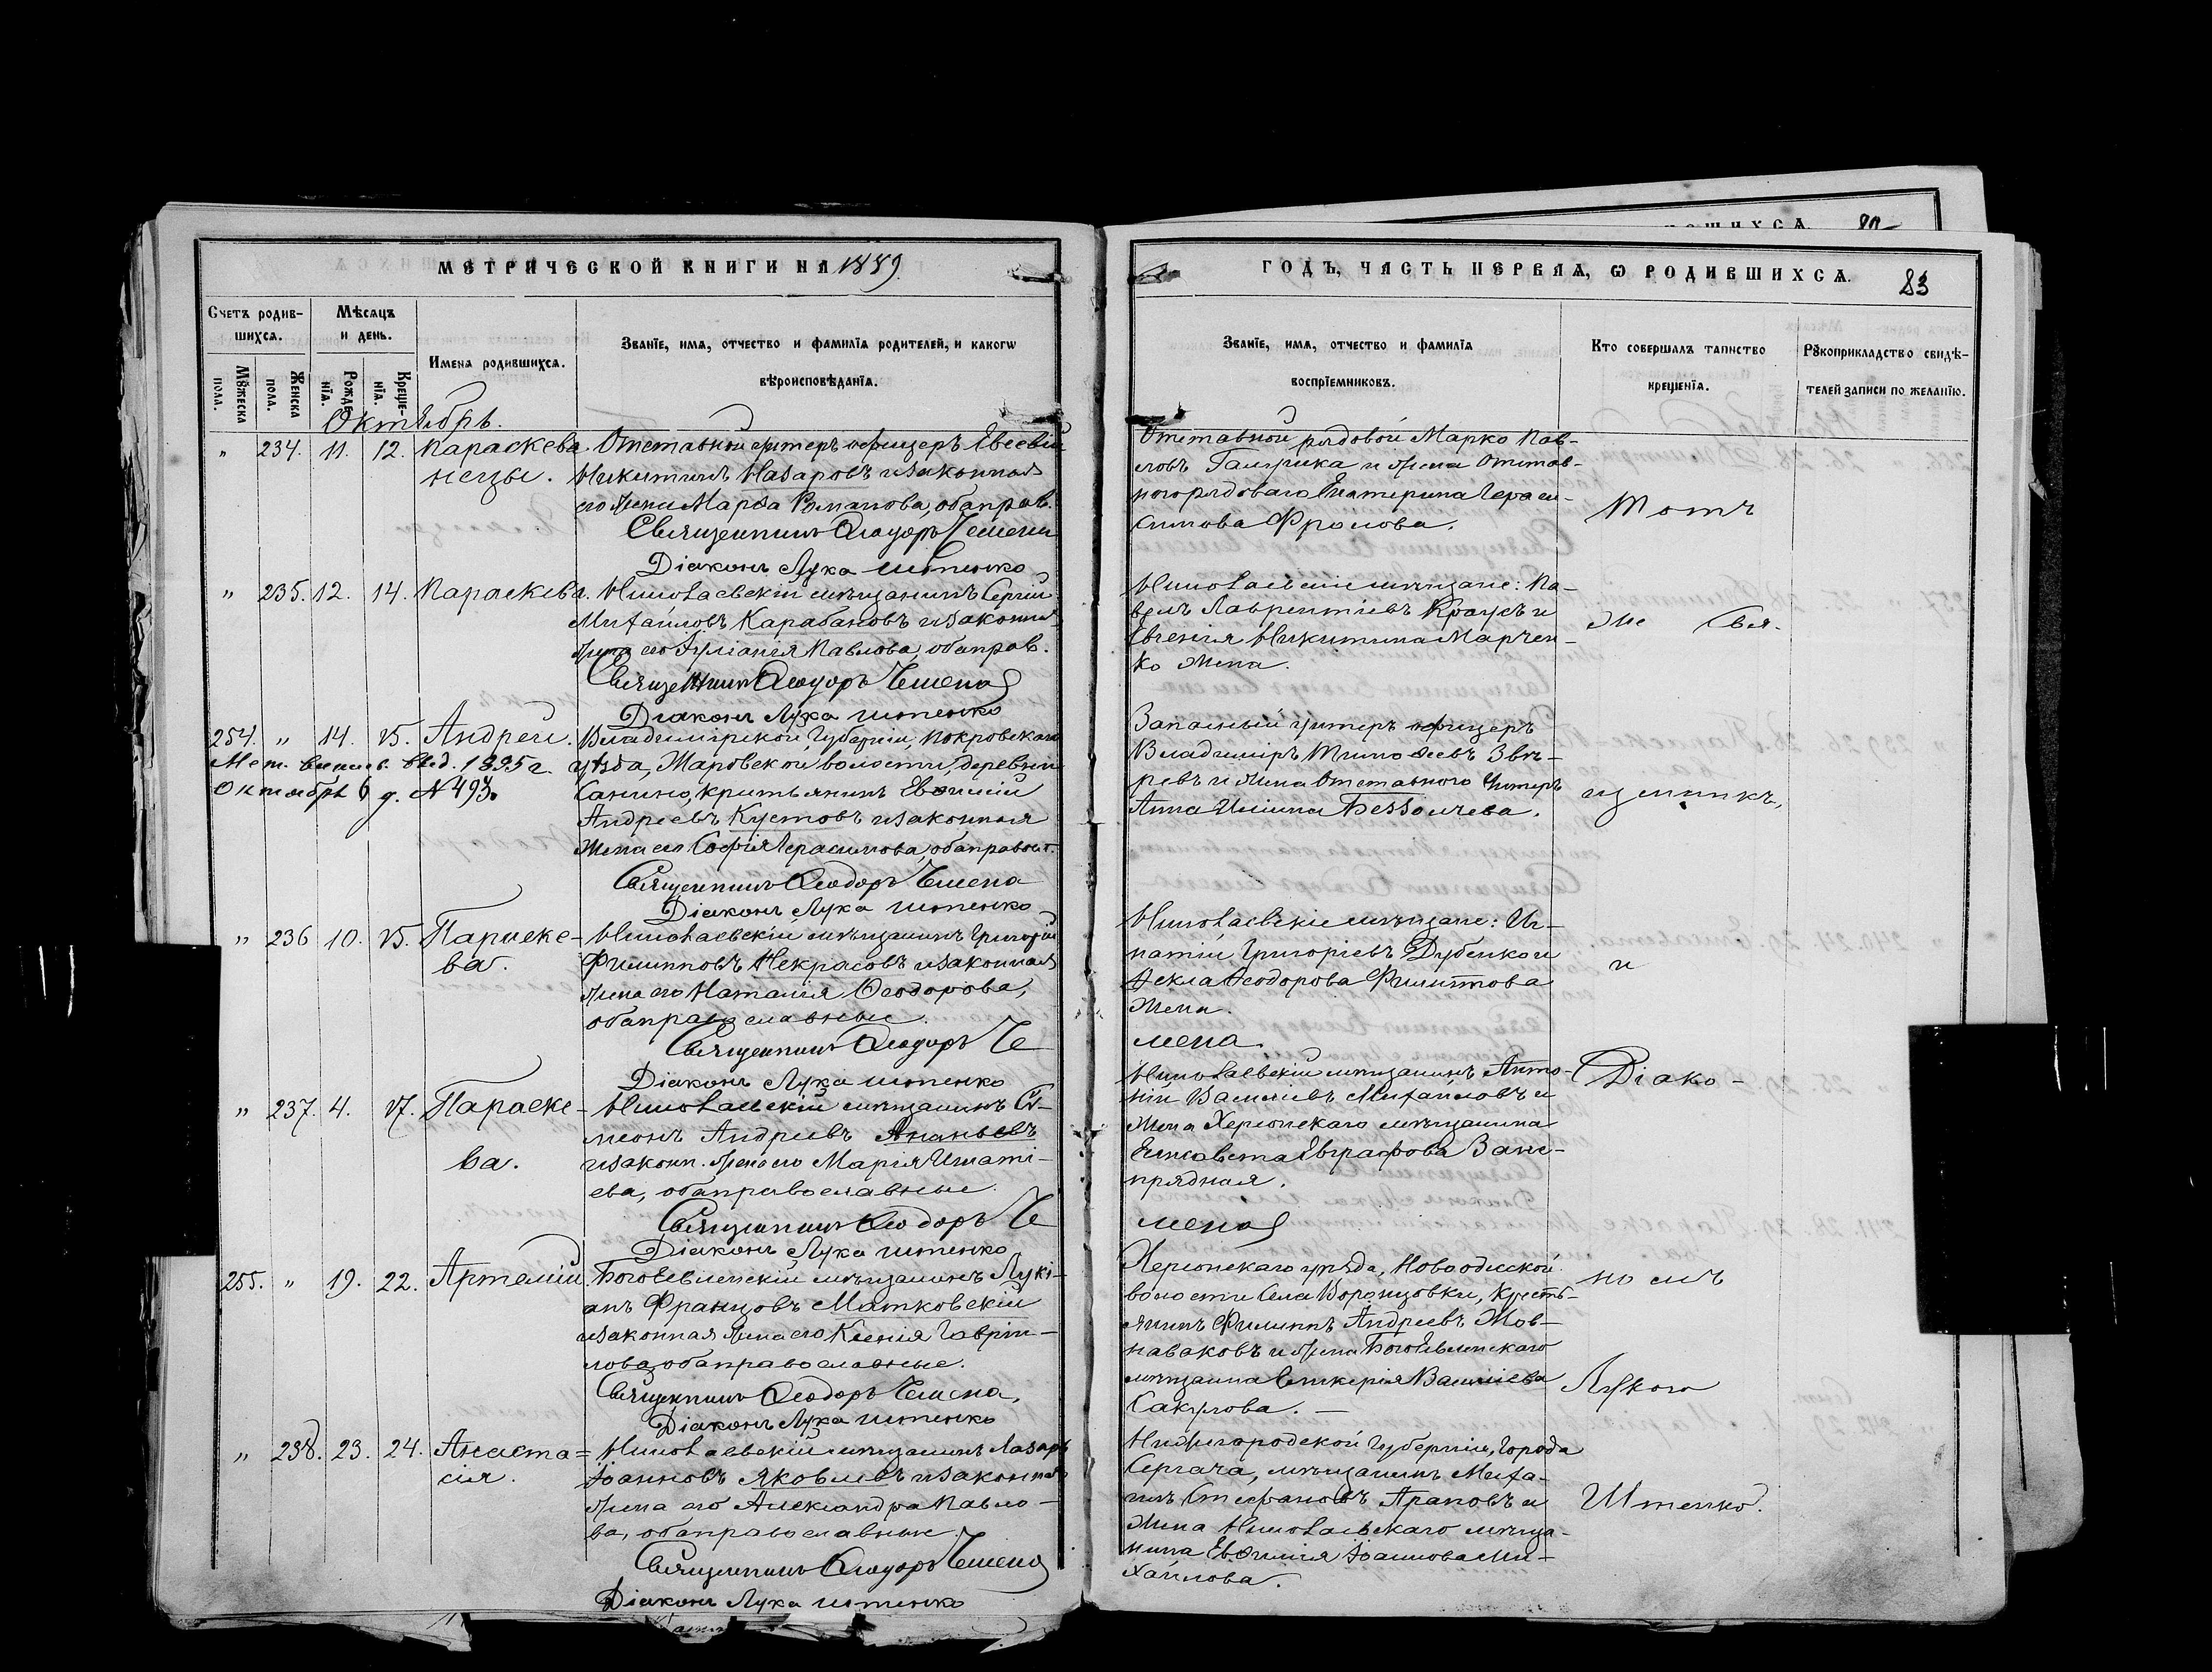 МЕТРИЧЕСКОЙ КНИГИ НА 1889.
Счетъ родившихся.
Мѣсяцъ и день.
Имена родившихся.
Званїе, имя, отчество и фамилїя родителей, и какогѡ
вѣроисповѣданїя.
Мꙋжеска пола.
Женска пола.
Рождѣнїя.
Крещенїя.
Октябрь.
" 234. 11. 12. Параскева Отставной унтеръ офицеръ Евсевій
Никитинъ Назаровъ и законная
его жена Марѳа Романова, оба прав.
Священникъ Ѳеодоръ Чемена
Діаконъ Лука Штенко
" 235. 12. 14. Параскева. Николаевскій мѣщанинъ Сергій
Михайловъ Карабановъ и законная
жена его Іуліанія Павлова, оба прав.
Священникъ Ѳеодоръ Чемена
Діаконъ Лука Штенко
254. " 14. 15. Андрей. Владимірской губерніи, Покровскаго
Мет. выпись выд. 1895 г. уѣзда, Маровской волости, деревни
Октября 6 д. № 493. Санино, крестьянинъ Евѳимій
Андреевъ Кустовъ и законная
жена его Софія Герасимова, оба правосл.
Священникъ Ѳеодоръ Чемена
Діаконъ Лука Штенко
" 236 10. 15. Параске- Николаевскій мѣщанинъ Григорій
ва. Филипповъ Некрасовъ и законная
жена его Наталія Ѳеодорова,
оба православные.
Священникъ Ѳеодоръ Че
Діаконъ Лука Штенко
" 237. 4. 17. Параске- Николаевскій мѣщанинъ Си-
меонъ Андреевъ Ананьевъ
ва. и законн. жена его Марія Игнаті-
ева, оба православные.
Священникъ Ѳеодоръ Че
Діаконъ Лука Штенко
255. " 19. 22. Артемій Богоявленскій мѣщанинъ Лукі-
анъ Францовъ Матковскій
и законная жена его Ксенія Гаврії-
лова, оба православные.
Священникъ Ѳеодоръ Чемена,
Діаконъ Лука Штенко
" 238. 23. 24. Анаста- Николаевскій мѣщанинъ Лазарь
сія. Іоанновъ Яковлевъ и законная
жена его Александра Павло-
ва, оба православные.
Священникъ Ѳеодоръ Чемена
Діаконъ Лука Штенко
ГОДЪ, ЧАСТЬ ПЕРВАЯ, Ѡ РОДИВШИХСЯ. 83
Званїе, имя, отчество и фамилїя
воспрїемниковъ.
Кто совершалъ таинство
крещенїя.
Рꙋкоприкладство свидѣ-
телей записи по желанїю.
Отставной рядовой Марко Пав-
ловъ и жена Отстав-
ного рядоваго Екатерина Гераси-
мова Фролова.
Тотъ
Николаевскіе мѣщане: Па-
велъ Лаврентіевъ Краусъ и
Евгенія Никитина Марчен-
ко жена.
же Свя-
Запасный унтеръ офицеръ
Владиміръ Тимоѳеевъ Звѣ-
ревъ и жена Отставного Унтеръ
Анна Ильина
щенникъ,
Николаевскіе мѣщане: Иг-
натій Григоріевъ Дубенко и
Ѳекла Ѳеодорова Филиппова
жена.
и
мена.
Николаевскій мѣщанинъ Анто-
ній Василіевъ Михайловъ и
жена Херсонскаго мѣщанина
Елисавета Евграфова Запе-
прядная.
Діако-
мена
Херсонскаго уѣзда, Новоодесской
волости села Воронцовки, кресть-
янинъ Филиппъ Андреевъ Жов-
наваковъ и жена Богоявленскаго
мѣщанина Гликерія Василіева
Сакулова. —
номъ
Лукою
Нижегородской губерніи, города
Сергача, мѣщанинъ Миха-
илъ Стефановъ Араповъ и
жена Николаевскаго мѣща-
нина Евѳимія Іоаннова Ми-
хайлова.
Штенко.